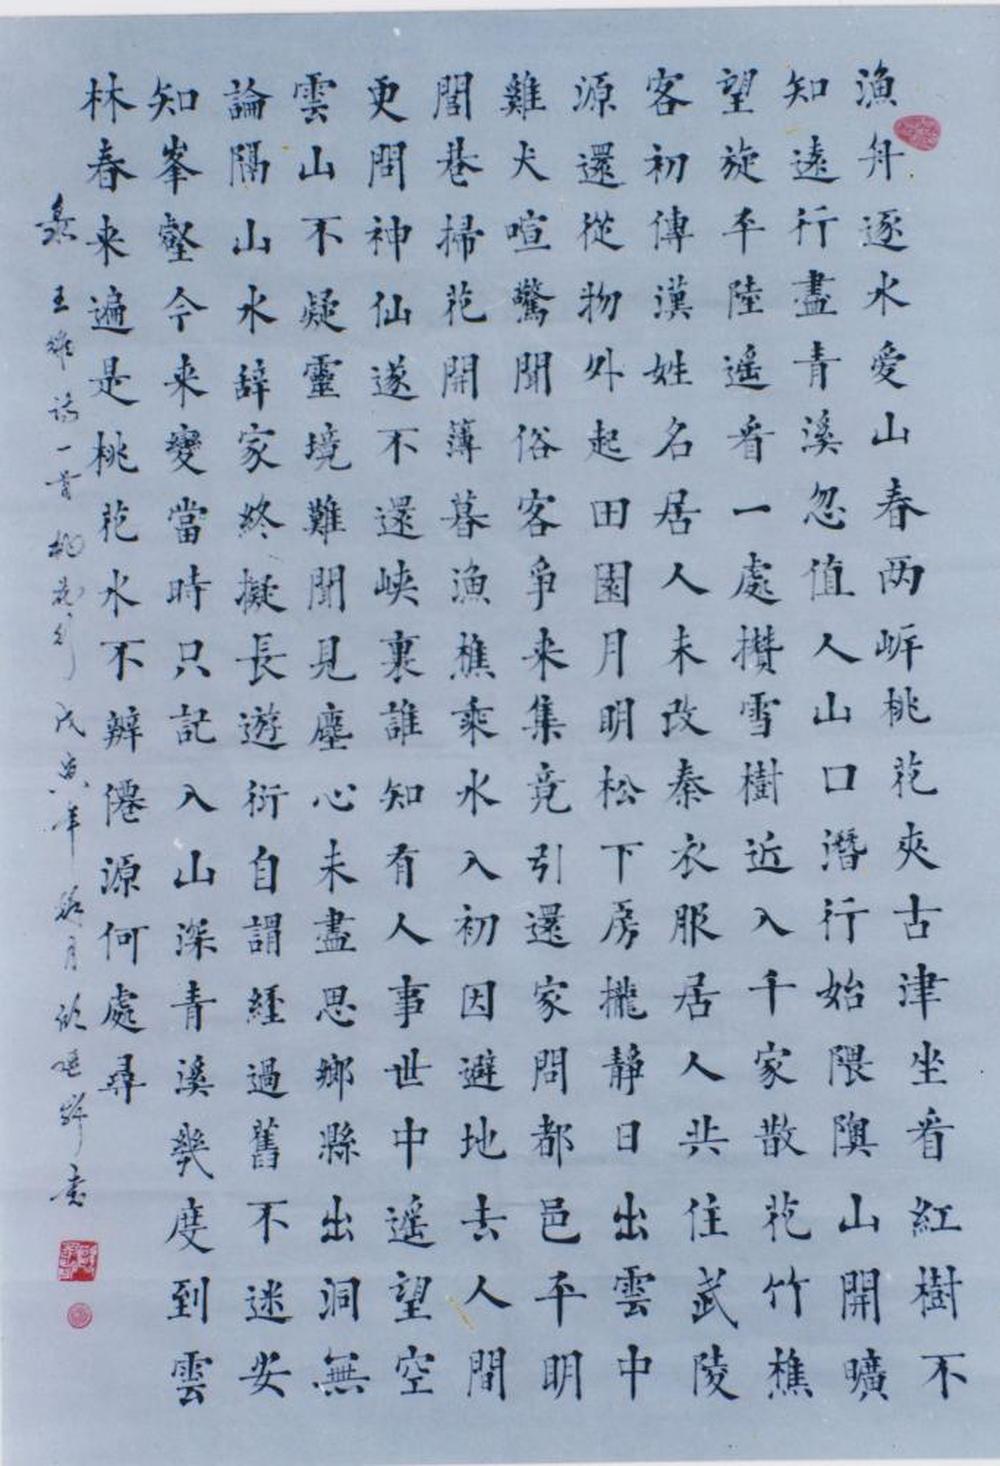 漁舟逐水愛山春两岍桃花夾古津坐看紅樹不
知遠行盡青溪忽值人山口潛行始隈隩山開曠
望旋平陸遥看一處攢雪樹近入千家散花竹樵
客初傳漢姓名居人未改秦衣服居人共住武陵
源還從物外起田園月明松下房攏靜日出雲中
雞犬喧驚聞俗客爭来集竟引還家問都邑平明
閭巷掃花開薄暮漁樵乘水入初因避地去人間
更問神仙遂不還峽裏誰知有人事世中遥望空
雲山不疑靈境難聞見塵心未盡思鄉縣出洞無
論隔山水辞家終擬長遊衍自謂經過舊不迷安
知峯壑今来變當時只記入山深青溪幾度到雲
林春来遍是桃花水不辨僊源何處尋
录王維詩一首桃花行戊寅年月書